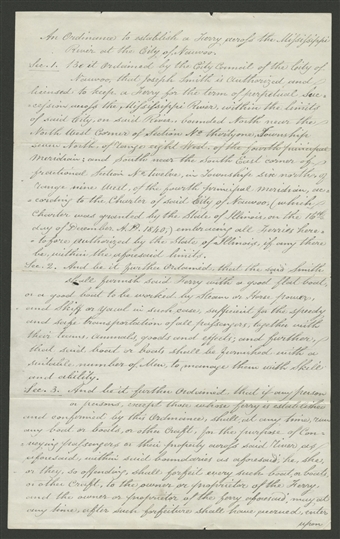 An Ordinance to establish a Ferry across the Mississippi
River at the City of Nauvoo.
Sec. 1. Be it Ordained by the City Council of the City of
Nauvoo, that Joseph Smith is Authorized and
licensed to keep a Ferry for the term of perpetual Suc-
cession across the Mississippi River, within the limits
of said City, on said River, bounded North near the
North West Corner of Section No thirty one, Township
seven North, of range eight West, of the fourth principal
Meridian; and south near the South East corner of
fractional Section No twelve, in Township six north, of
range nine West, of the fourth principal meridian, ac-
cording to the Charter of said City of Nauvoo, (which
Charter was granted by the State of Illinois, on the 16th
day of December A.D. 1840,) embracing all Ferries here-
tofore authorized by the State of Illinois, if any there
be, within the aforesaid limits.
Sec. 2. And be it further Ordained, that the said Smith
shall furnish said Ferry with a good flat boat,
or a good boat to be worked by Steam or Horse power,
and Skiff or yawl in such case, sufficient for the speedy
and safe transportation of all passengers, together with
their teams, animals, goods and effects; and further,
that said boat or boats shall be furnished with a
suitable number of Men, to manage them with skill
and ability.
Sec. 3. And be it further Ordained, that if any person
or persons, except those whose ferry is established
and confirmed by this Ordinance, shall, at any time, run
any boat or boats, or other Craft, for the purpose of Con-
veying passengers or their property across said River as
aforesaid, within said boundaries as aforesaid, he, she,
or they, so offending, shall forfeit every such boat, or boats,
or other Craft, to the owner or proprietor of the Ferry,
and the owner or proprietor of the ferry aforesaid, may at
any time, after such forfeiture shall have accrued, enter
upon